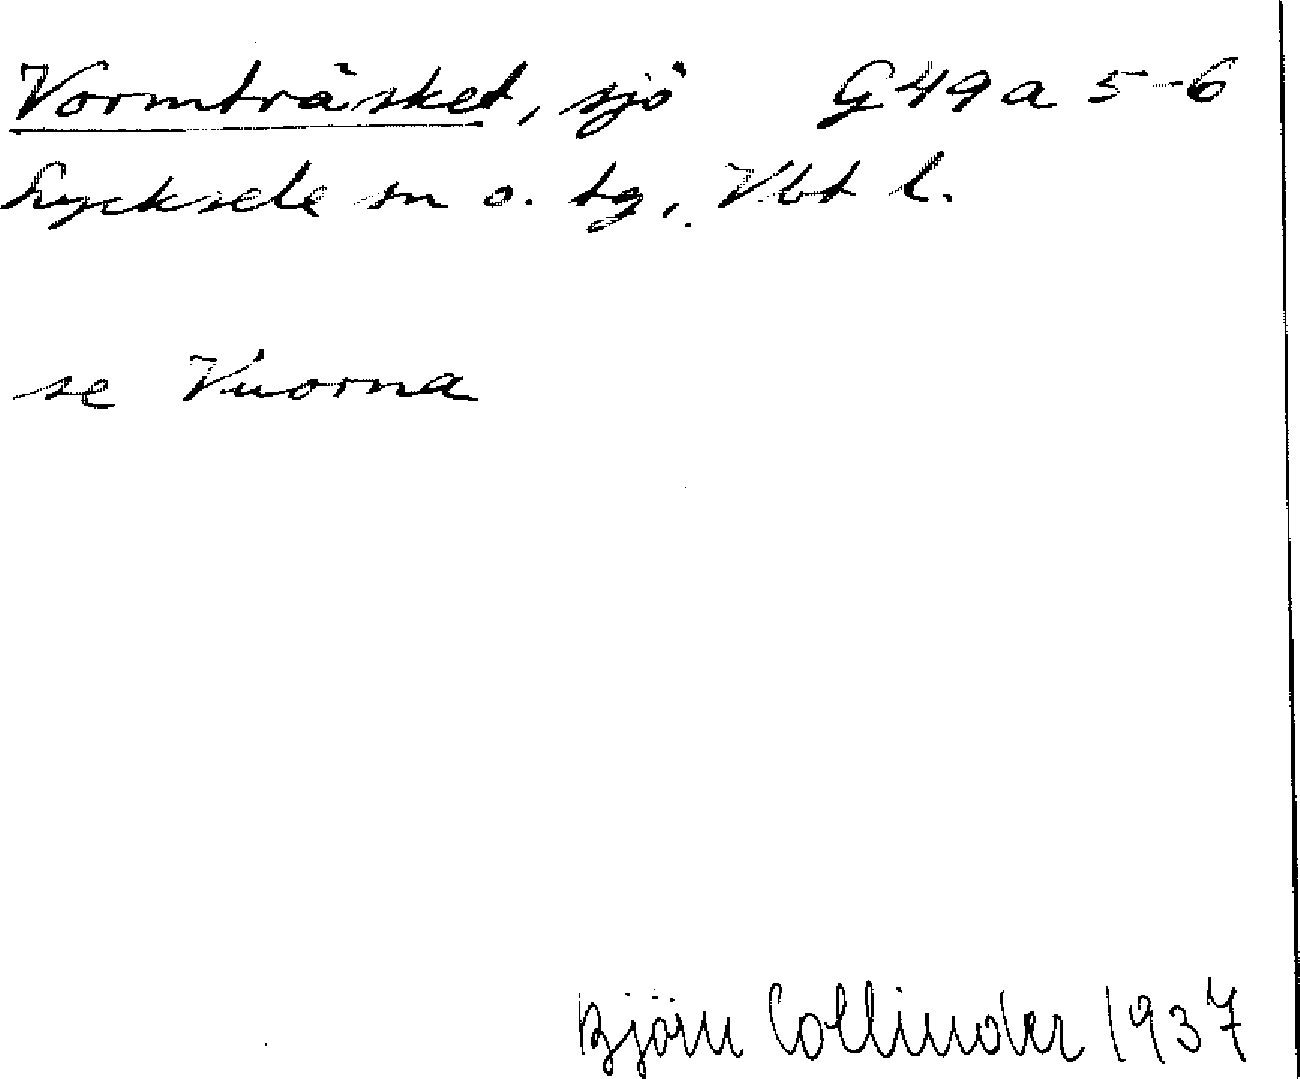 Vormträsket, sjö G 49 a 5-6
Lycksele sn o. tg, Vbt l.
se Vuorna
Björn Collinder 1937